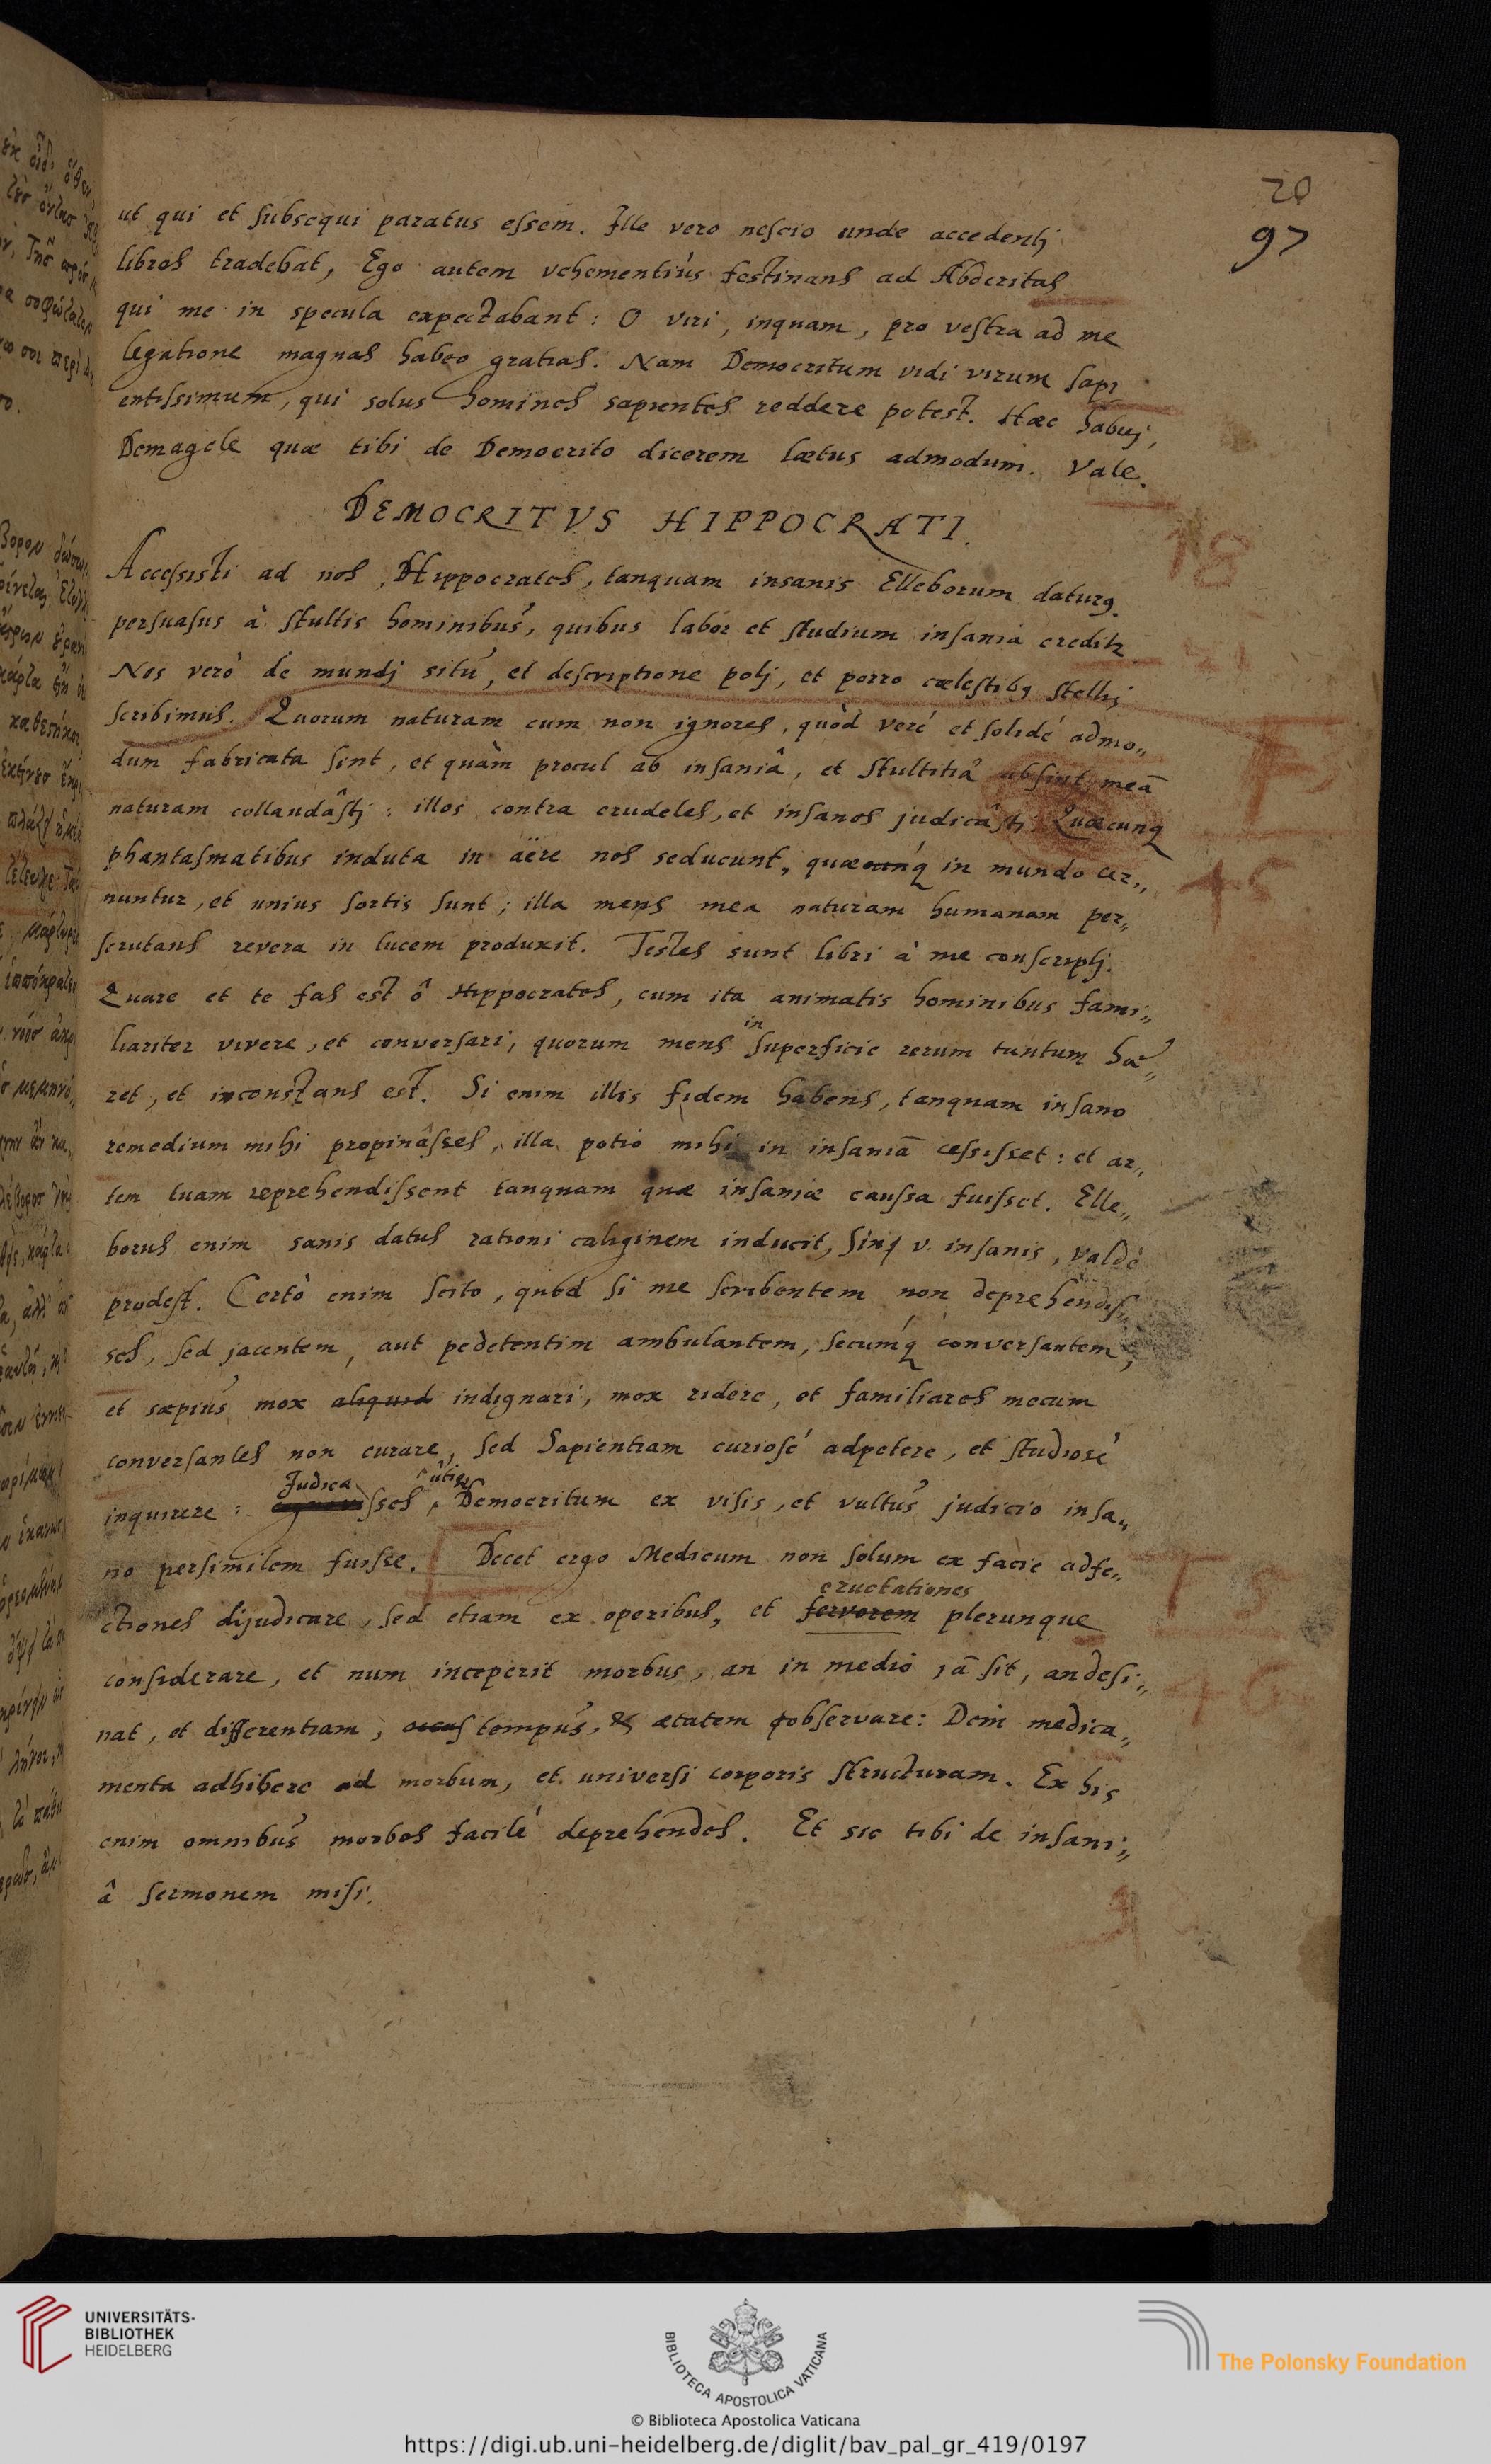 20
97
ut qui et subsequi paratus essem. Ille vero nescio unde accedentj
libros tradebat, Ego autem vehementiùs festinans ad Abderitas
qui me in specula expectabant: O viri, inquam, pro vestra ad me
legatione magnas habeo gratias. Nam Democritum vidi virum sapi
entissimum, qui solus homines sapientes reddere potest. Hæc habuj,
Demagele quæ tibi de Democrito dicerem lætus admodum. Vale.
DEMOCRITVS HIPPOCRATI.
18
Accessisti ad nos, Hippocrates, tanquam insanis Elleborum daturꝰ.
persuasus à stultis hominibus, quibus labor et studium insania credit̃
Nos verò de mundj situ, et descriptione polj, et porro cœlestibꝰ stellis
scribimus. Quorum naturam cum non ignores, quòd veré et solidé admo„
dum fabricata sint, et quàm procul ab insaniâ, et stultitiâ absint, meā
naturam collaudâstj: illos contra crudeles, et insanos judicâstj. Quæcunq́
phantasmatibus induta in aëre nos seducunt, quæcunq́ in mundo cer„
nuntur, et unius sortis sunt; illa mens mea naturam humanam per„
scrutans revera in lucem produxit. Testes sunt libri à me conscriptj.
Quare et te fas est ô Hippocrates, cum ita animatis hominibus fami„
liariter vivere, et conversari, quorum mens in superficie rerum tantum hæ„
ret, et inconstans est. Si enim illis fidem habens, tanquam insano
remedium mihi propinâsses, illa potio mihi in insaniā cessisset: et ar„
tem tuam reprehendissent tanquam quæ insaniæ caussa fuisset. Elle„
borus enim sanis datus rationi caliginem inducit, sinꝗ v. insanis, valdè
prodest. Certò enim scito, quòd si me scribentem non deprehendis„
ses, sed jacentem, aut pedetentim ambulantem, secumq́ conversantem,
et sæpius mox aliquid indignari, mox ridere, et familiares mecum
conversantes non curare, sed Sapientiam curiosé adpetere, et studiosé
inquirere: Judicasses, utiq Democritum ex visis, et vultus judicio insa„
no persimilem fuisse. Decet ergo Medicum non solum ex facie adfe„
ctiones dijudicare, sed etiam ex operibus, et fervorem eructationes plerunque
considerare, et num inceperit morbus, an in medio jā sit, an desi„
nat, et differentiam, tempus, & ætatem observare: Dein medica„
menta adhibere ad morbum, et universi corporis structuram. Ex his
enim omnibus morbos facilé deprehendes. Et sic tibi de insani„
â sermonem misi.
UNIVERSITÄTS-
BIBLIOTHEK
HEIDELBERG
BIBLIOTECA APOSTOLICA VATICANA
The Polonsky Foundation
© Biblioteca Apostolica Vaticana
https://digi.ub.uni-heidelberg.de/diglit/bav_pal_gr_419/0197